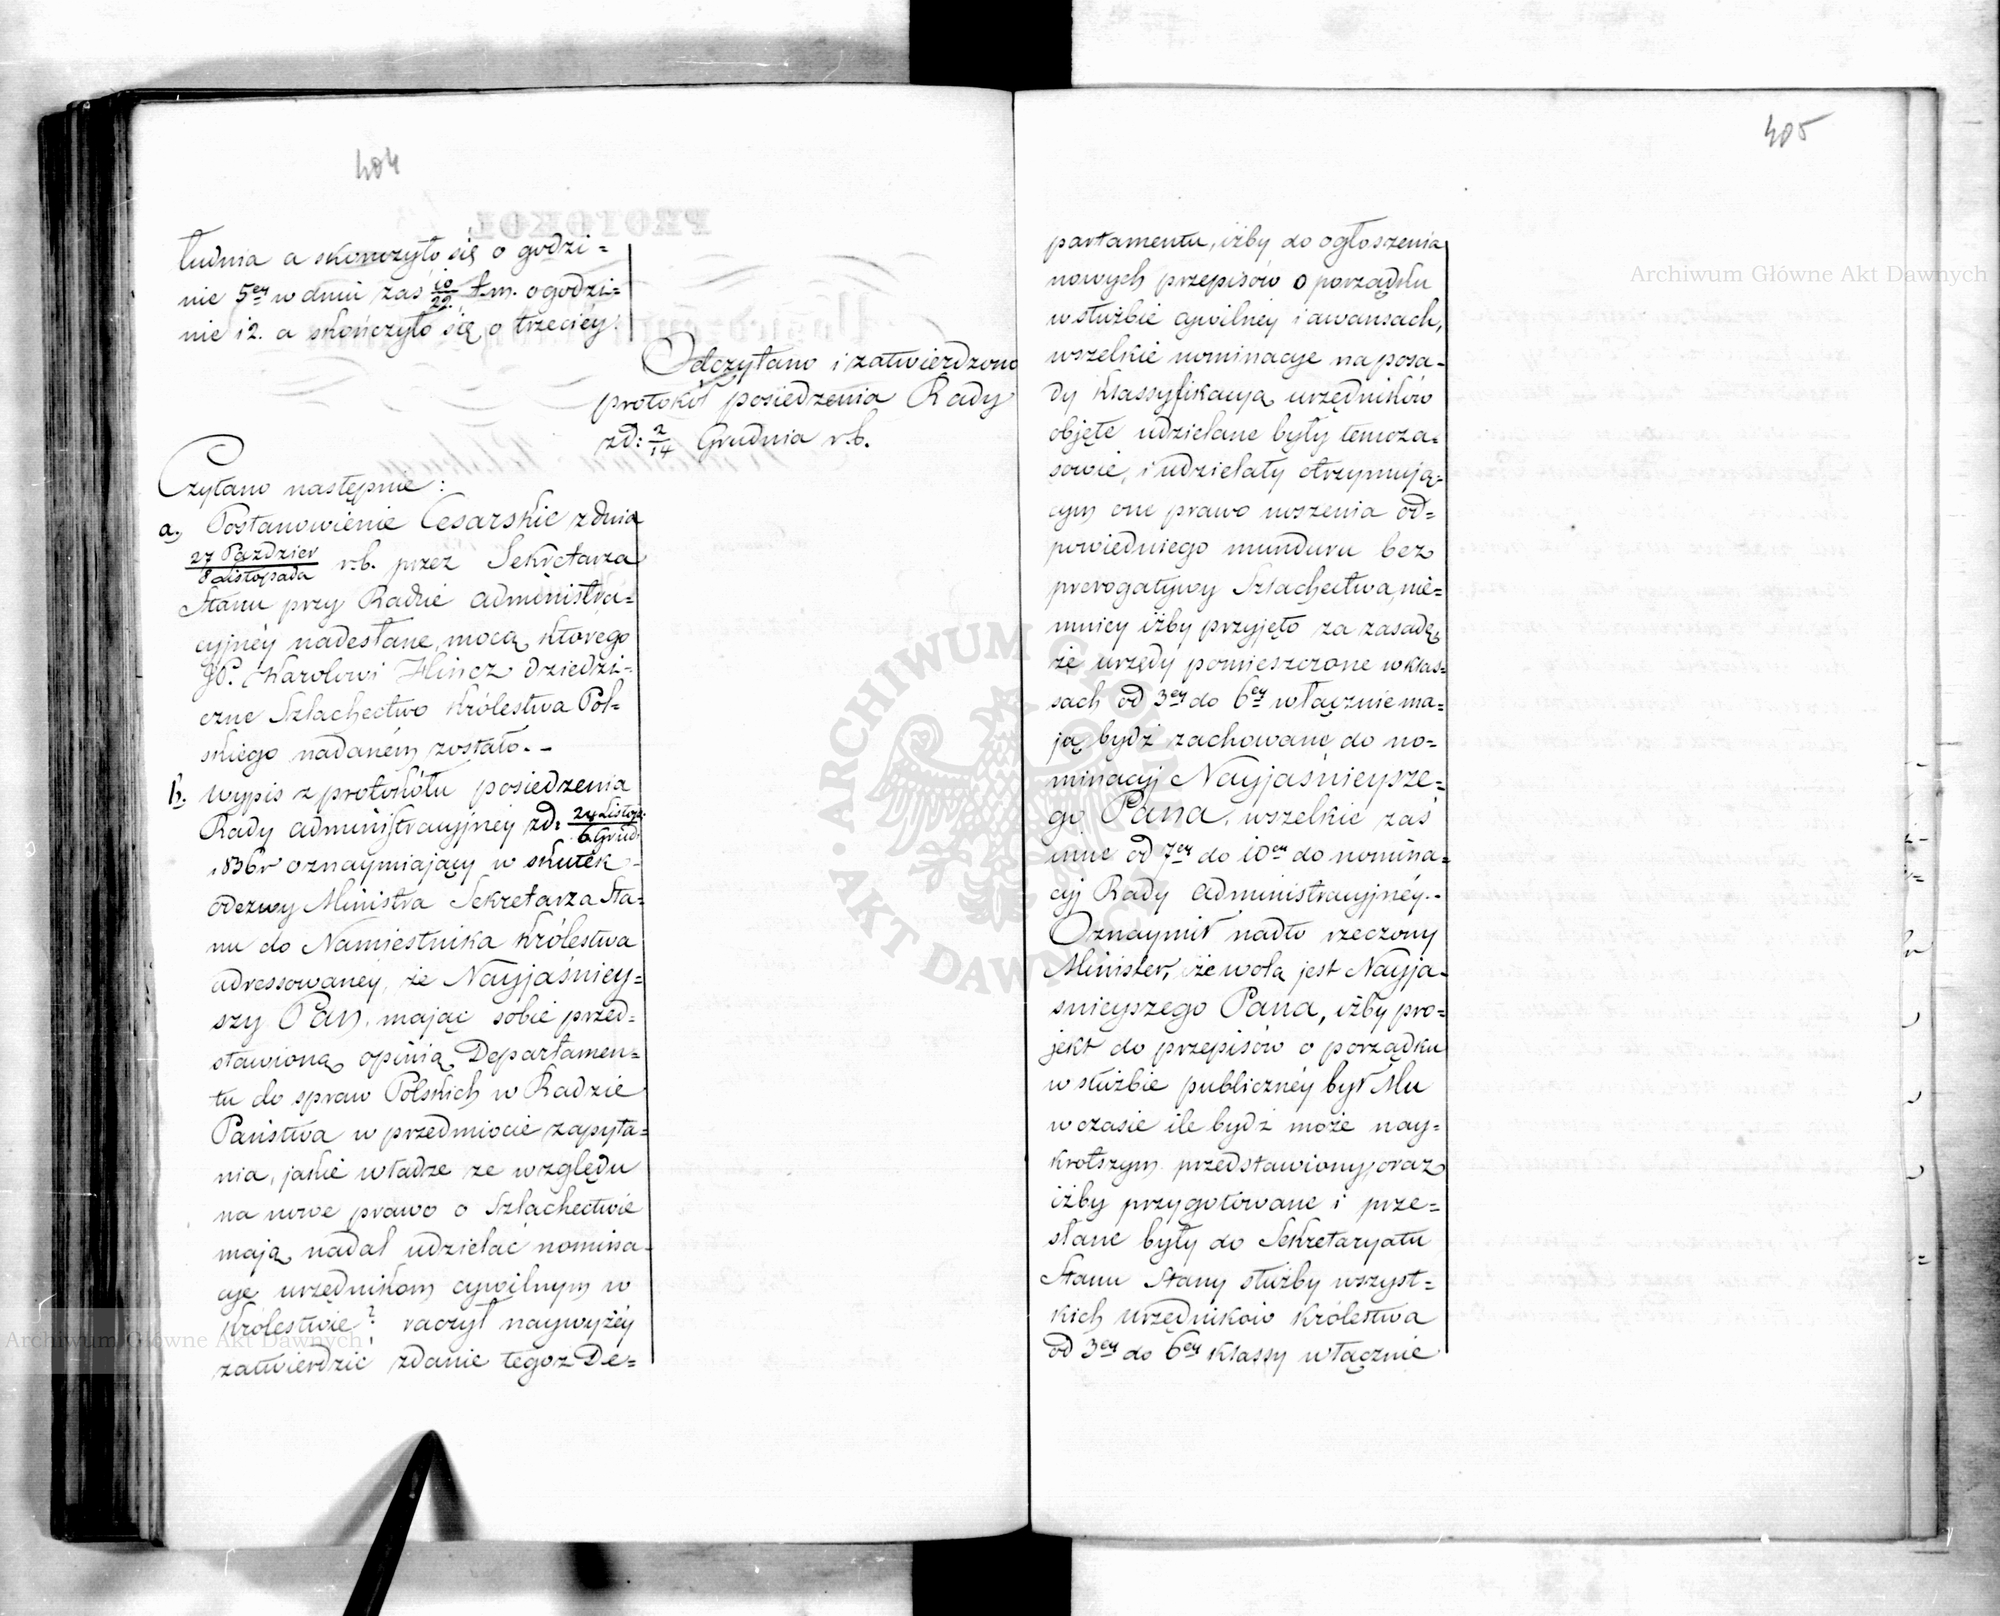 404
łudnia a skończyło się o godzi=
nie 5ey w dniu zaś 10/22 t.m. o godzi=
nie 12. a skończyło się o trzeciéy.
Odczytano i zatwierdzono
protokół posiedzenia Rady
z d: 2/14 Grudnia r.b.
Czytano następnie:
a, Postanowienie Cesarskie z dnia
27 Paździer/8 Listopada r.b. przez Sekretarza
Stanu przy Radzie Administra=
cyjnéy nadesłane, mocą którego
JP. Karolowi Hincz dziedzi=
czne Szlachectwo Królestwa Pol=
skiego nadaném zostało. -
b. Wypis z protokółu posiedzenia
Rady Administracyjnéy z d: 24 Listop:/6 Grud:
1836 r oznaymiający w skutek
odezwy Ministra Sekretarza Sta=
nu do Namiestnika Królestwa
adressowanéy, że Nayjaśniey=
szy Pan, mając sobie przed=
stawioną opinią Departamen=
tu do spraw Polskich w Radzie
Państwa w przedmiocie zapyta=
nia, jakie władze ze względu
na nowe prawo o Szlachectwie
mają nadal udzielać nomina=
cye urzędnikom cywilnym w
Królestwie? raczył naywyżéy
zatwierdzić zdanie tegoż De=
405
partamentu, iżby do ogłoszenia
nowych przepisów o porządku
w służbie cywilnéy i awansach,
wszelkie nominacye na posa=
dy klassyfikacyą urzędników
objęte udzielane były temcza=
sowie, i udzielały otrzymują=
cym one prawo noszenia od=
powiedniego munduru bez
prerogatywy Szlachectwa, nie=
mniey iżby przyjęto za zasadę,
że urzędy pomieszczone w klas=
sach od 3ey do 6ey włącznie ma=
ją bydź zachowane do no=
minacyj Nayjaśnieysze=
go Pana, wszelkie zaś
inne od 7ey do 10ey do nomina=
cyj Rady Administracyjnéy. -
Oznaymił nadto rzeczony
Minister, że wolą jest Nayja=
śnieyszego Pana, iżby pro=
jekt do przepisów o porządku
w służbie publicznéy był Mu
w czasie ile bydź może nay=
krótszym przedstawiony, oraz
iżby przygotowane i prze=
słane były do Sekretaryatu
Stanu Stany służby wszyst=
kich urzędników Królestwa
od 3ey do 6ey klassy włącznie
Archiwum Główne Akt Dawnych
ARCHIWUM GŁÓWNE · AKT DAWNYCH ·
Archiwum Główne Akt Dawnych